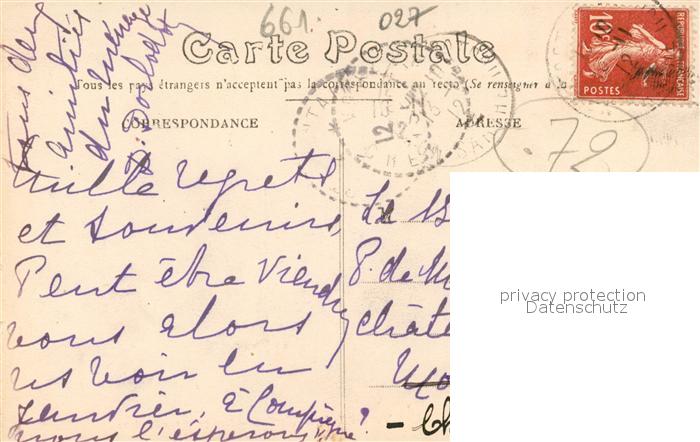 661
027
Carte Postale
Tous les pays étrangers n'acceptent pas la correspondance au recto (Se renseigner à la
CORRESPONDANCE
ADRESSE
10c
REPUBLIQUE FRANÇAISE
POSTES
.72
amitiés
du ménage
Mille regrets
et souvenirs,
Peut être viendrez
vous alors
us voir en
janvier, à Compiègne?
nous l'espérons
Le
P. de M
châte
Mo
- Ch
privacy protection
Datenschutz